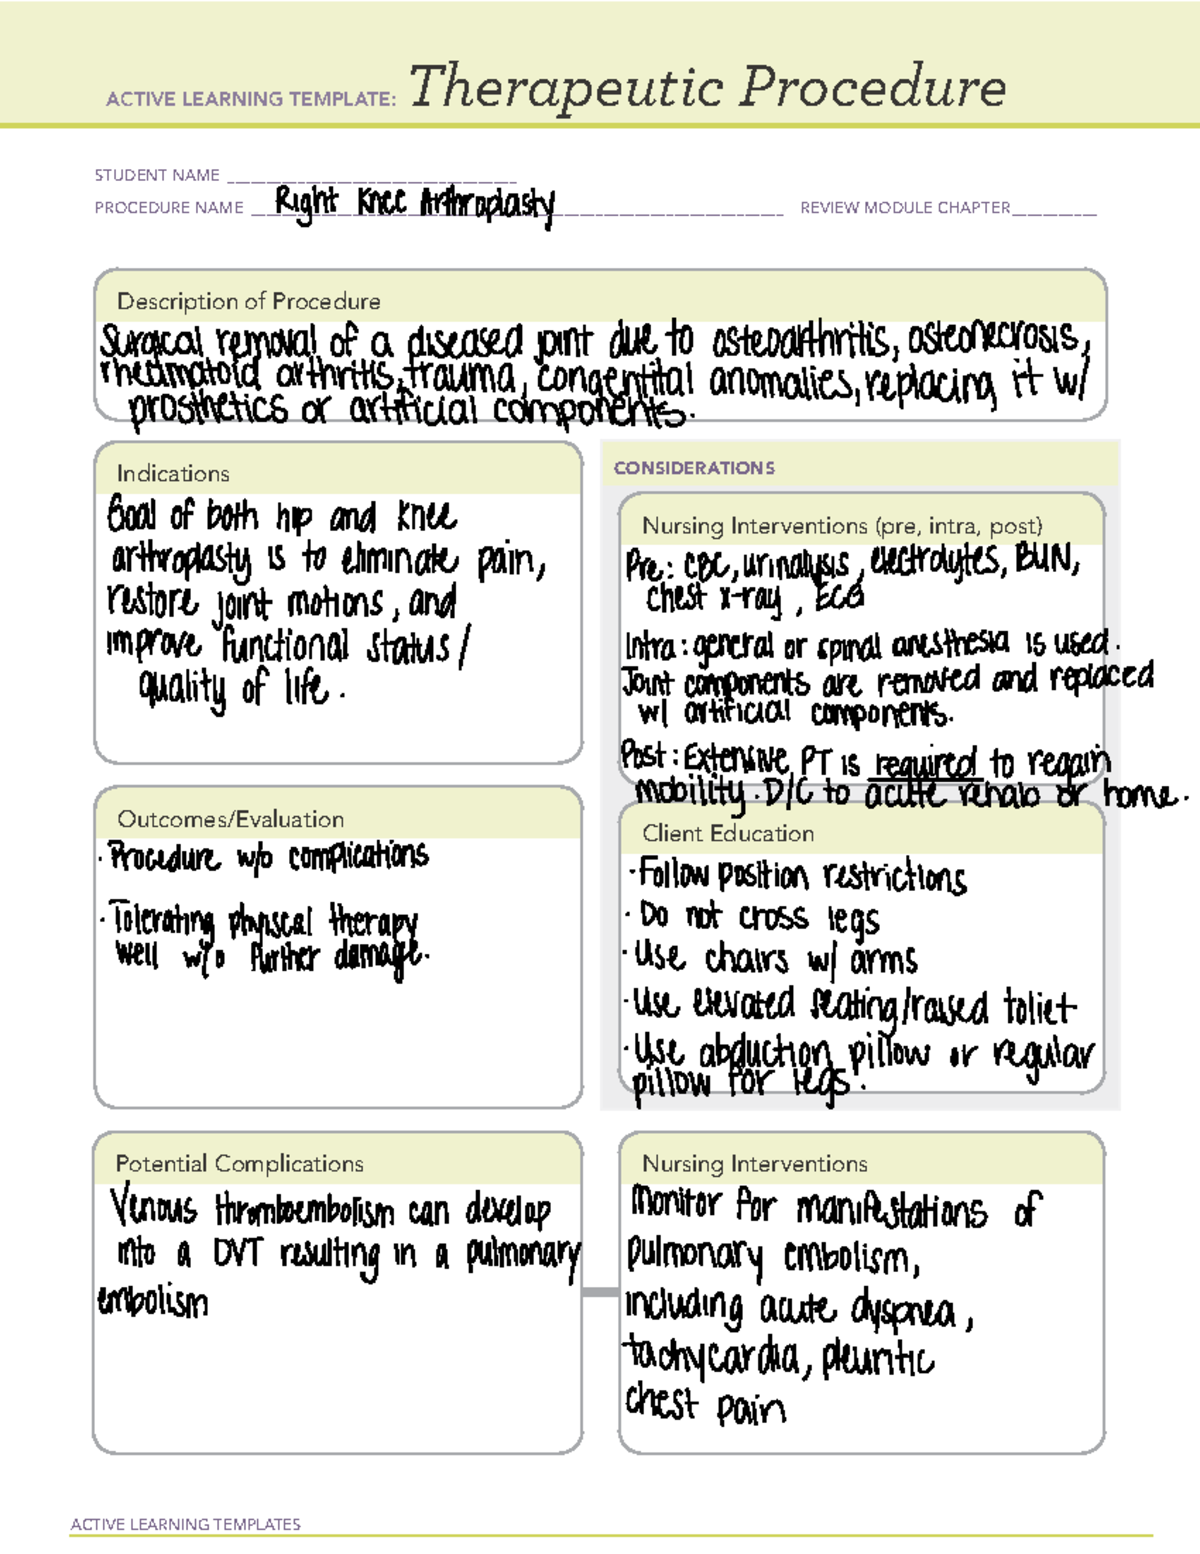 ACTIVE LEARNING TEMPLATE: Therapeutic Procedure
STUDENT NAME
PROCEDURE NAME Right Knee Arthroplasty REVIEW MODULE CHAPTER
Description of Procedure
Surgical removal of a diseased joint due to osteoarthritis, osteonecrosis,
rheumatoid arthritis, trauma, congentital anomalies, replacing it w/
prosthetics or artificial components.
Indications
Goal of both hip and knee
arthroplasty is to eliminate pain,
restore joint motions, and
improve functional status/
quality of life.
CONSIDERATIONS
Nursing Interventions (pre, intra, post)
Pre: CBC, urinalysis, electrolytes, BUN,
chest x-ray, ECG
Intra: general or spinal anesthesia is used.
Joint components are removed and replaced
w/ artificial components.
Post: Extensive PT is required to regain
mobility. D/C to acute rehab or home.
Outcomes/Evaluation
· Procedure w/o complications
· Tolerating physcal therapy
well w/o further damage.
Client Education
· Follow position restrictions
· Do not cross legs
· Use chairs w/ arms
· Use elevated seating/raised toliet
· Use abduction pillow or regular
pillow for legs.
Potential Complications
Venous thromboembolism can develop
into a DVT resulting in a pulmonary
embolism
Nursing Interventions
Monitor for manifestations of
pulmonary embolism,
including acute dyspnea,
tachycardia, pleuritic
chest pain
ACTIVE LEARNING TEMPLATES